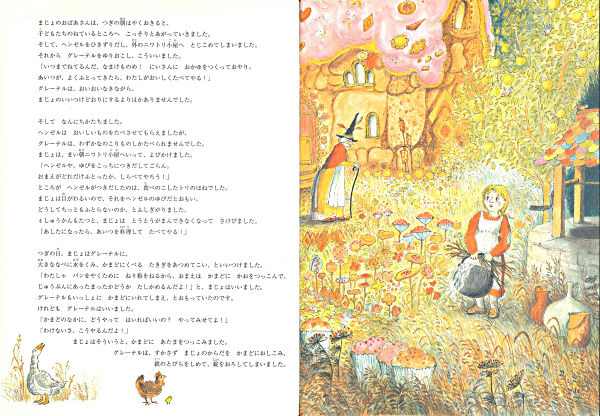 まじょのおばあさんは、つぎの朝はやくおきると、
子どもたちのねているところへ　こっそりとあがっていきました。
そして、ヘンゼルをひきずりだし、外のニワトリ小屋へ　とじこめてしまいました。
それから　グレーテルをゆりおこし、こういいました。
「いつまでねてるんだ、なまけものめ！　にいさんに　おかゆをつくっておやり。
あいつが、よくふとってきたら、わたしがおいしくたべてやる！」
グレーテルは、おいおいなきながら、
まじょのいいつけどおりにするよりほかありませんでした。
そして　なんにちかたちました。
ヘンゼルは　おいしいものをたべさせてもらえましたが、
グレーテルは、わずかなのこりものしかたべられませんでした。
まじょは、まい朝ニワトリ小屋へいって、よびかけました。
「ヘンゼルや、ゆびをこっちにつきだしてごらん。
おまえがどれだけふとったか、しらべてやろう！」
ところが　ヘンゼルがつきだしたのは、食べのこしたトリのほねでした。
まじょは目がわるいので、それをヘンゼルのゆびだとおもい、
どうしてちっともふとらないのか、とふしぎがりました。
4しゅうかんもたつと、まじょは　とうとうがまんできなくなって　さけびました。
「あしたになったら、あいつを料理して　たべてやる！」
つぎの日、まじょはグレーテルに、
大きななべに水をくみ、かまどにくべる　たきぎをあつめてこい、といいつけました。
「わたしゃ　パンをやくために　ねり粉をねるから、おまえは　かまどに　かおをつっこんで、
じゅうぶんにあったまったかどうか　たしかめるんだよ！」と、まじょはいいました。
グレーテルもいっしょに　かまどにいれてしまえ、とおもっていたのです。
けれども　グレーテルはいいました。
「かまどのなかに、どうやって　はいればいいの？　やってみせてよ！」
「わけないさ、こうやるんだよ！」
まじょはそういうと、かまどに　あたまをつっこみました。
グレーテルは、すかさず　まじょのからだを　かまどにおしこみ、
鉄のとびらをしめて、錠をおろしてしまいました。